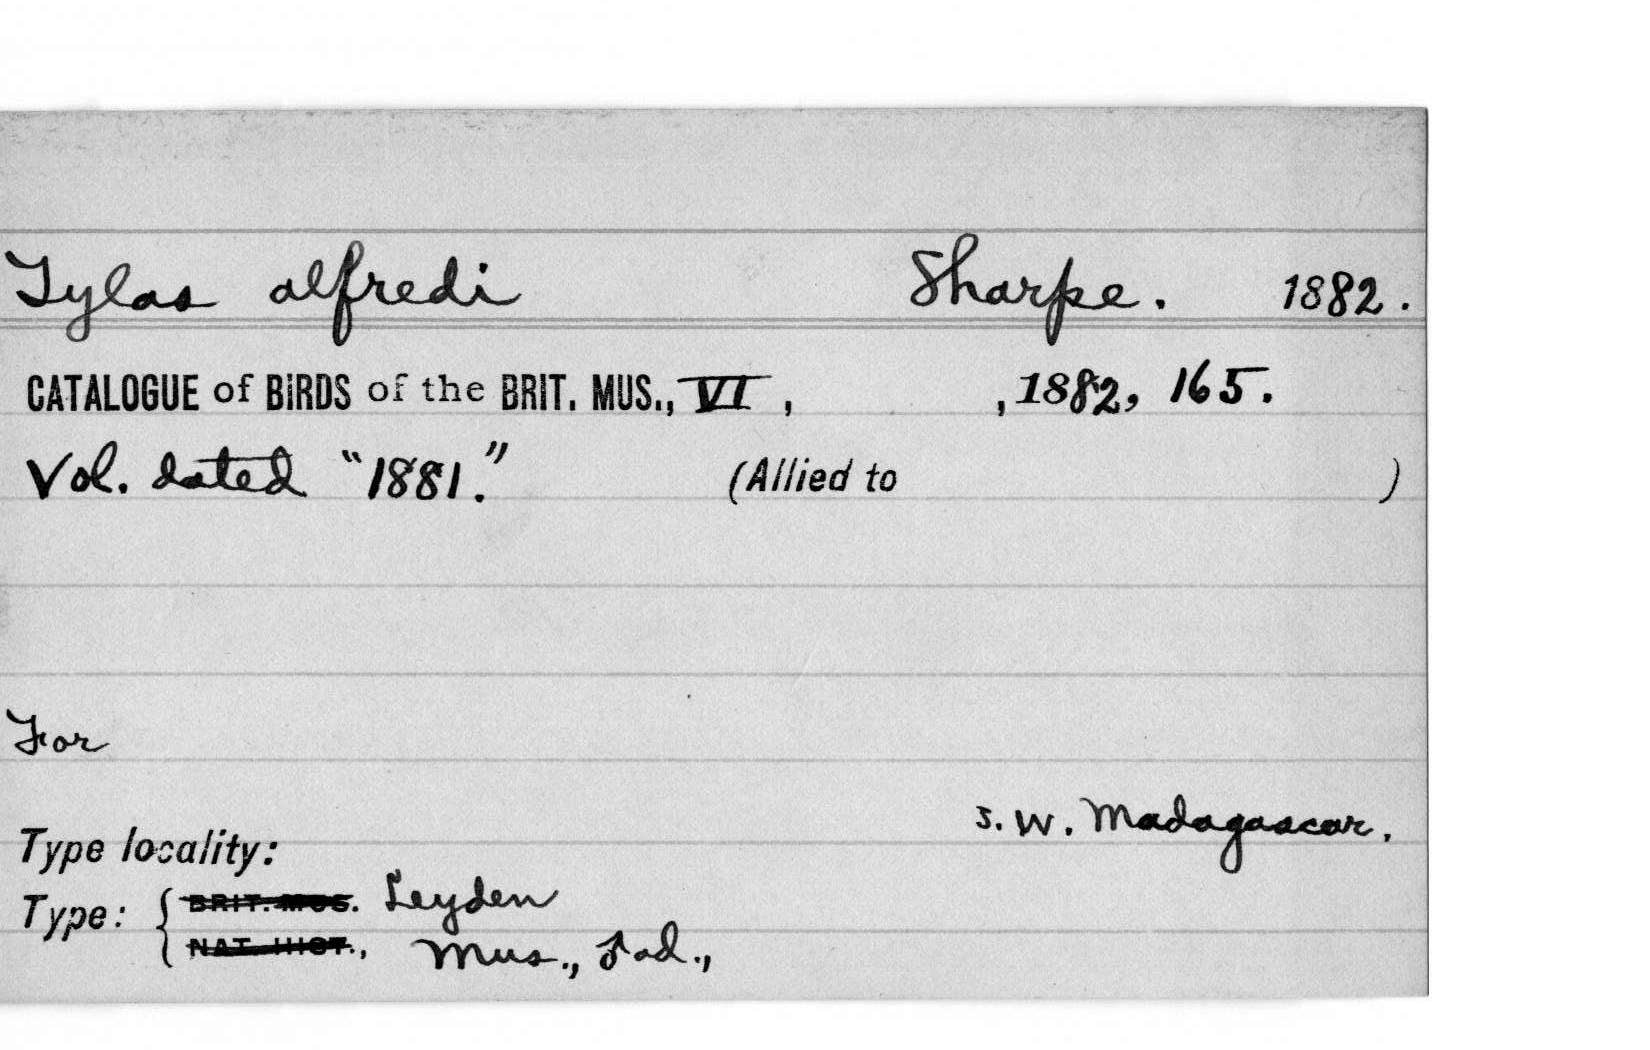 Tylas alfredi Sharpe. 1882.
CATALOGUE of BIRDS of the BRIT. MUS., VI, , 1882, 165.
Vol. dated "1881." (Allied to )
For
S. W. Madagascar.
Type locality:
Type: { BRIT. MUS. Leyden
NAT. HIST., Mus., Fad.,